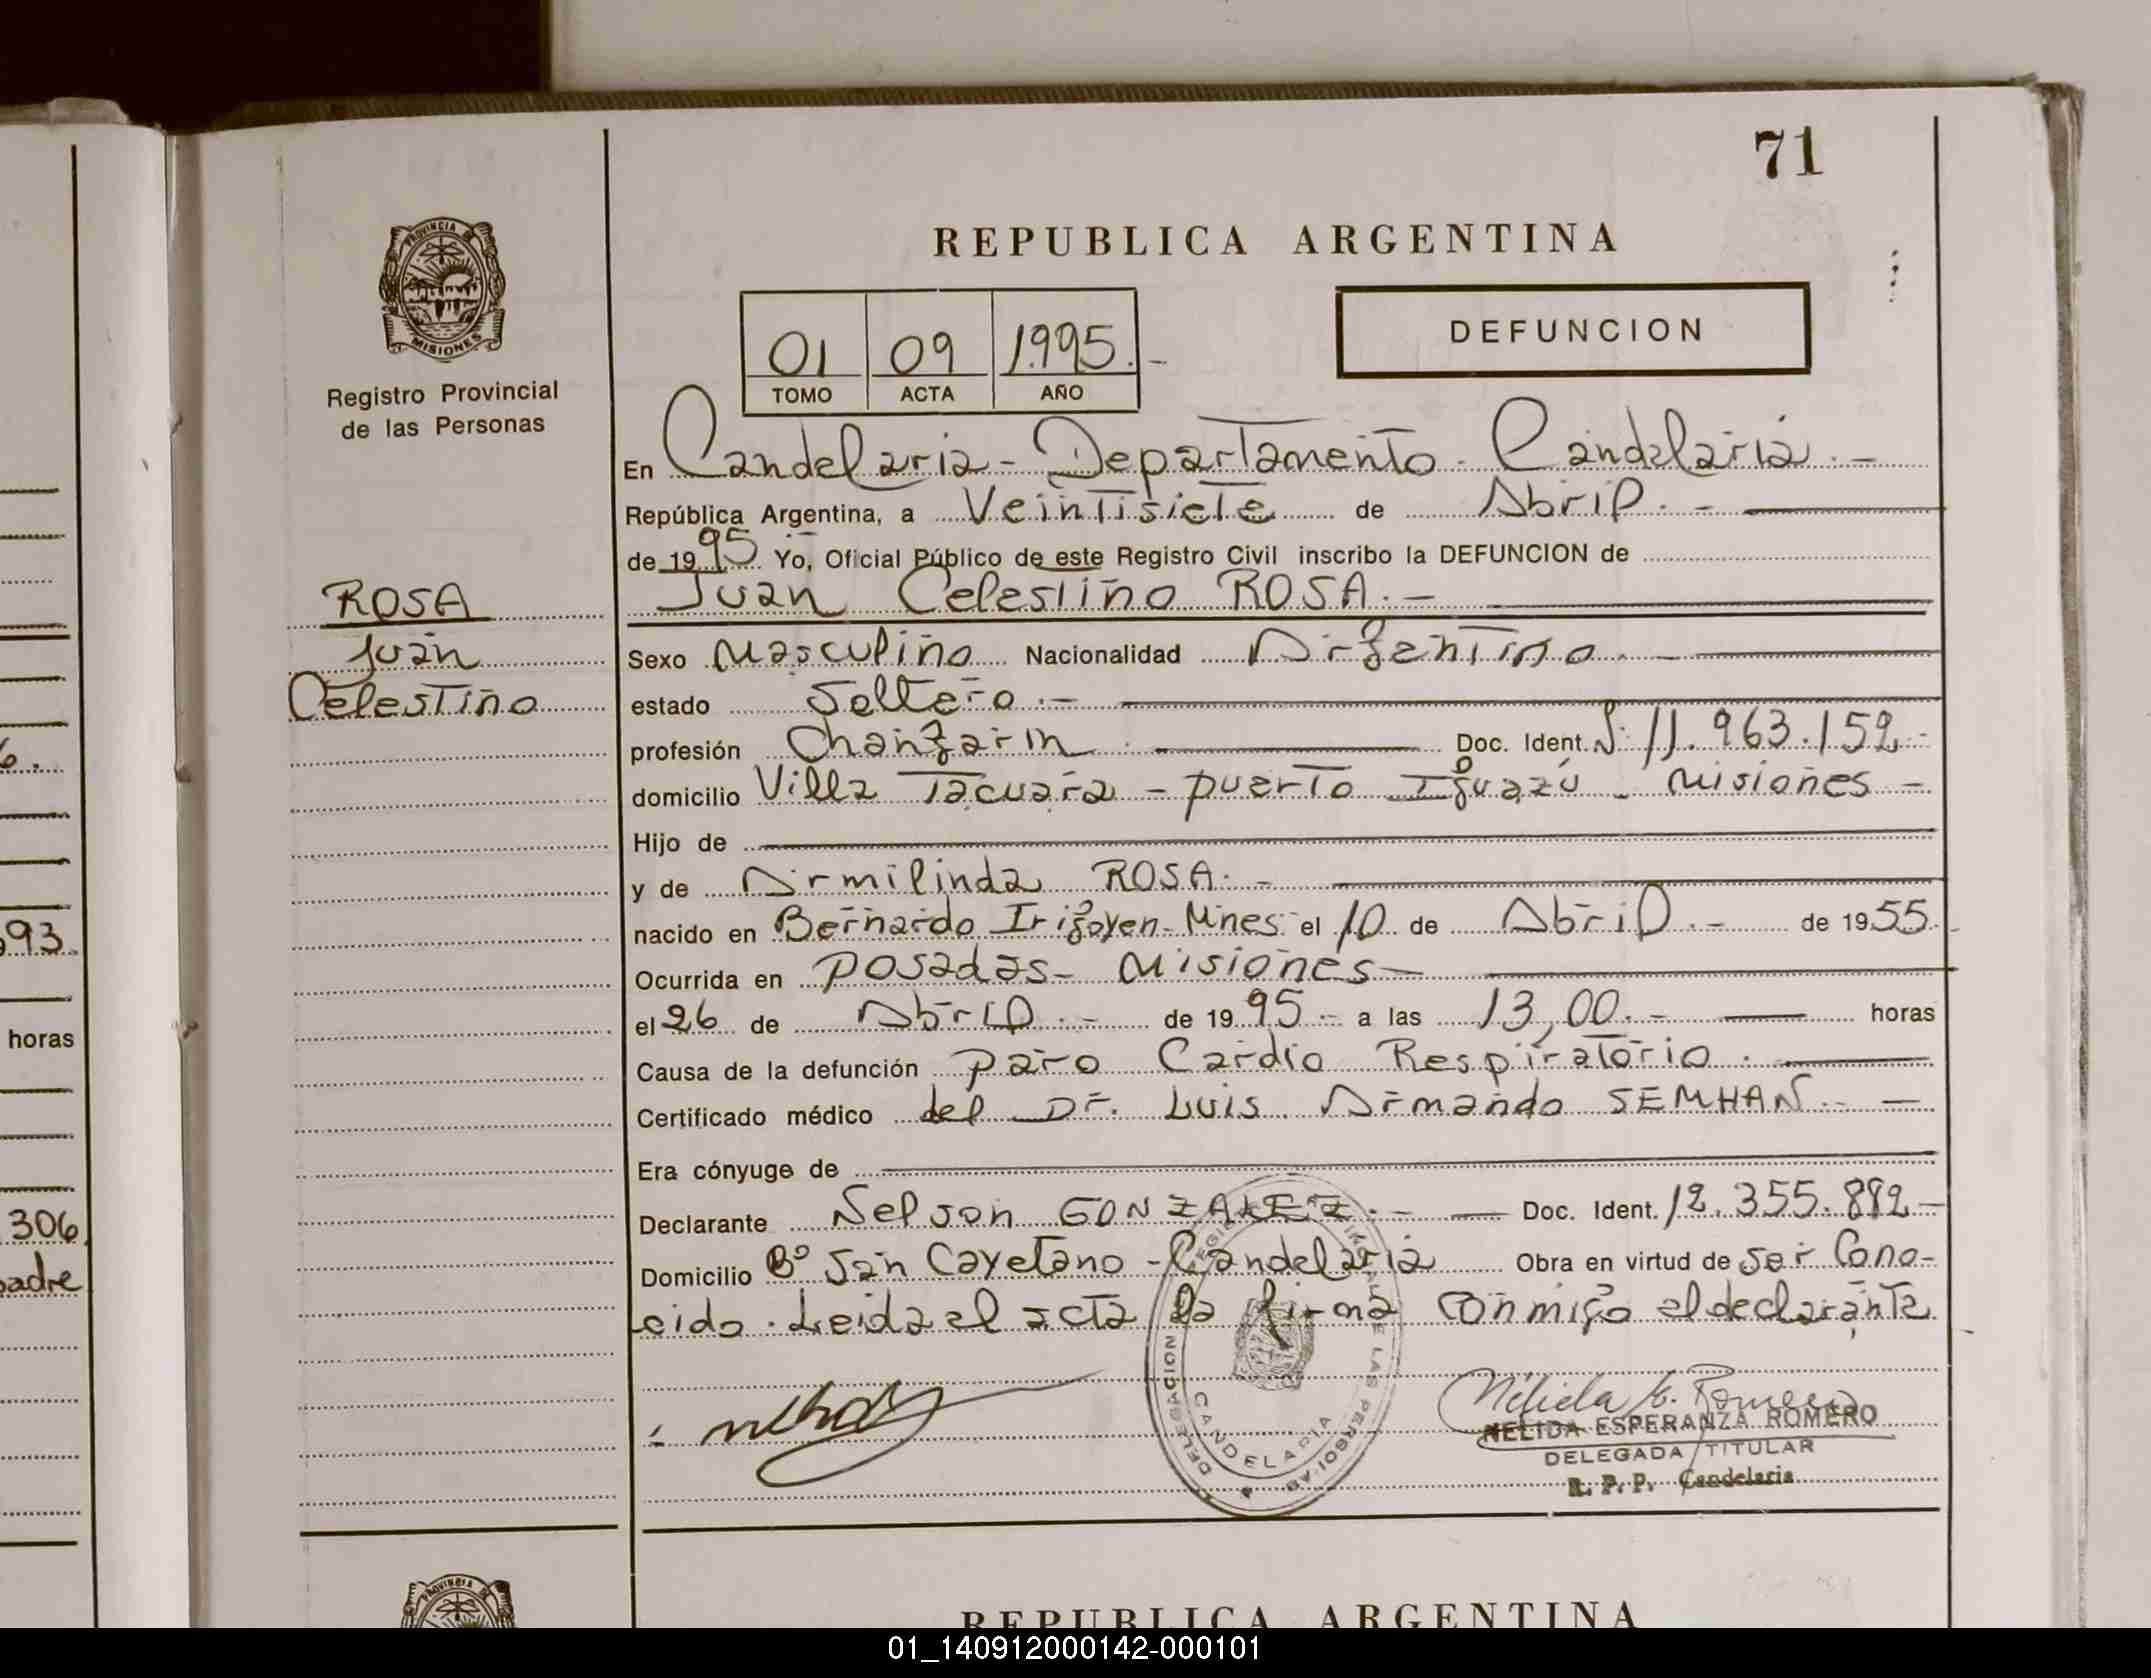 71
PROVINCIA DE
MISIONES
Registro Provincial
de las Personas
REPUBLICA ARGENTINA
01 09 1.995.-
TOMO ACTA AÑO
DEFUNCION
En Candelaria - Departamento - Candelaria.-
República Argentina, a Veintisiete de Abril.-
de 1995 Yo, Oficial Público de este Registro Civil inscribo la DEFUNCION de
Juan Celestino ROSA.-
ROSA
Juan
Celestino
Sexo Masculino Nacionalidad Argentino.-
estado Soltero.-
profesión Changarin Doc. Ident. 11.963.152.-
domicilio Villa Tacuara - puerto Iguazú - Misiones -
Hijo de
y de Armilinda ROSA.-
nacido en Bernardo Irigoyen - Mnes el 10 de Abril.- de 1955.
Ocurrida en posadas - Misiones -
el 26 de Abril.- de 1995.- a las 13,00.- horas
Causa de la defunción paro Cardio Respiratorio.
Certificado médico del Dr. Luis Armando SEMHAN.-
Era cónyuge de
Declarante Nelson GONZALEZ.- Doc. Ident. 12.355.892-
Domicilio B° San Cayetano - Candelaria Obra en virtud de ser Cono-
cido. Leida el acta la firma conmigo el declarante
DELEGACION CANDELARIA DE LAS PERSONAS
NELIDA ESPERANZA ROMERO
DELEGADA TITULAR
R. P. P. Candelaria
6.
93.
horas
306
padre
REPUBLICA ARGENTINA
01_140912000142-000101